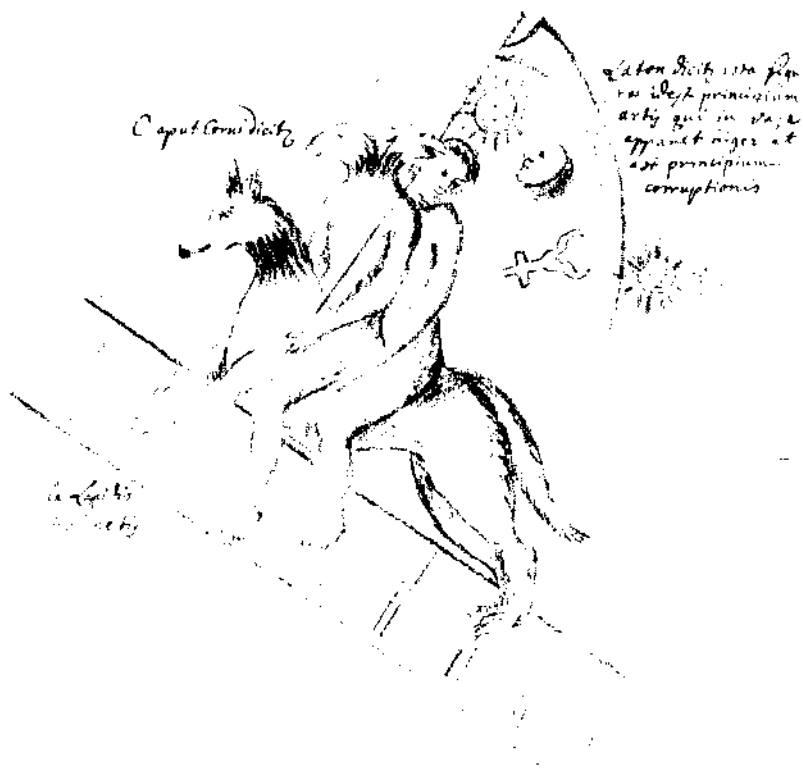 Caput Corui dicitz
Laton dicitz ista figu
ra idest principium
artis qui in vase
apparet niger et
est principium
corruptionis
Lapidis